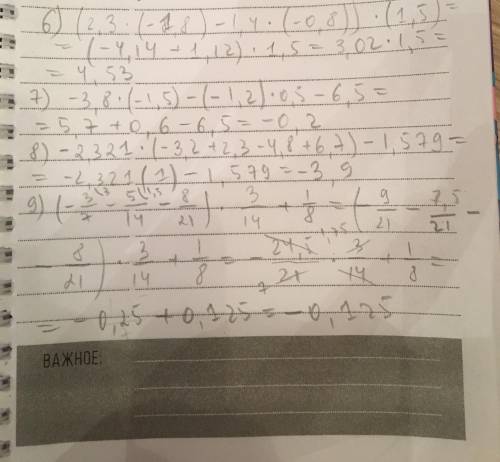 6) (2,3 · (-1,8) - 1,4 · (-0,8)) · (1,5) =
= (-4,14 + 1,12) · 1,5 = 3,02 · 1,5 =
= 4,53
7) -3,8 · (-1,5) - (-1,2) · 0,5 - 6,5 =
= 5,7 + 0,6 - 6,5 = -0,2
8) -2,321 · (-3,2 + 2,3 - 4,8 + 6,7) - 1,579 =
= -2,321 (1) - 1,579 = -3,9
9) (-3/7 - 5/14 - 8/21) · 3/14 + 1/8 = (-9/21 - 7,5/21 -
- 8/21) · 3/14 + 1/8 = - 24,5/21 · 3/14 + 1/8 =
= -0,25 + 0,125 = -0,125
ВАЖНОЕ: